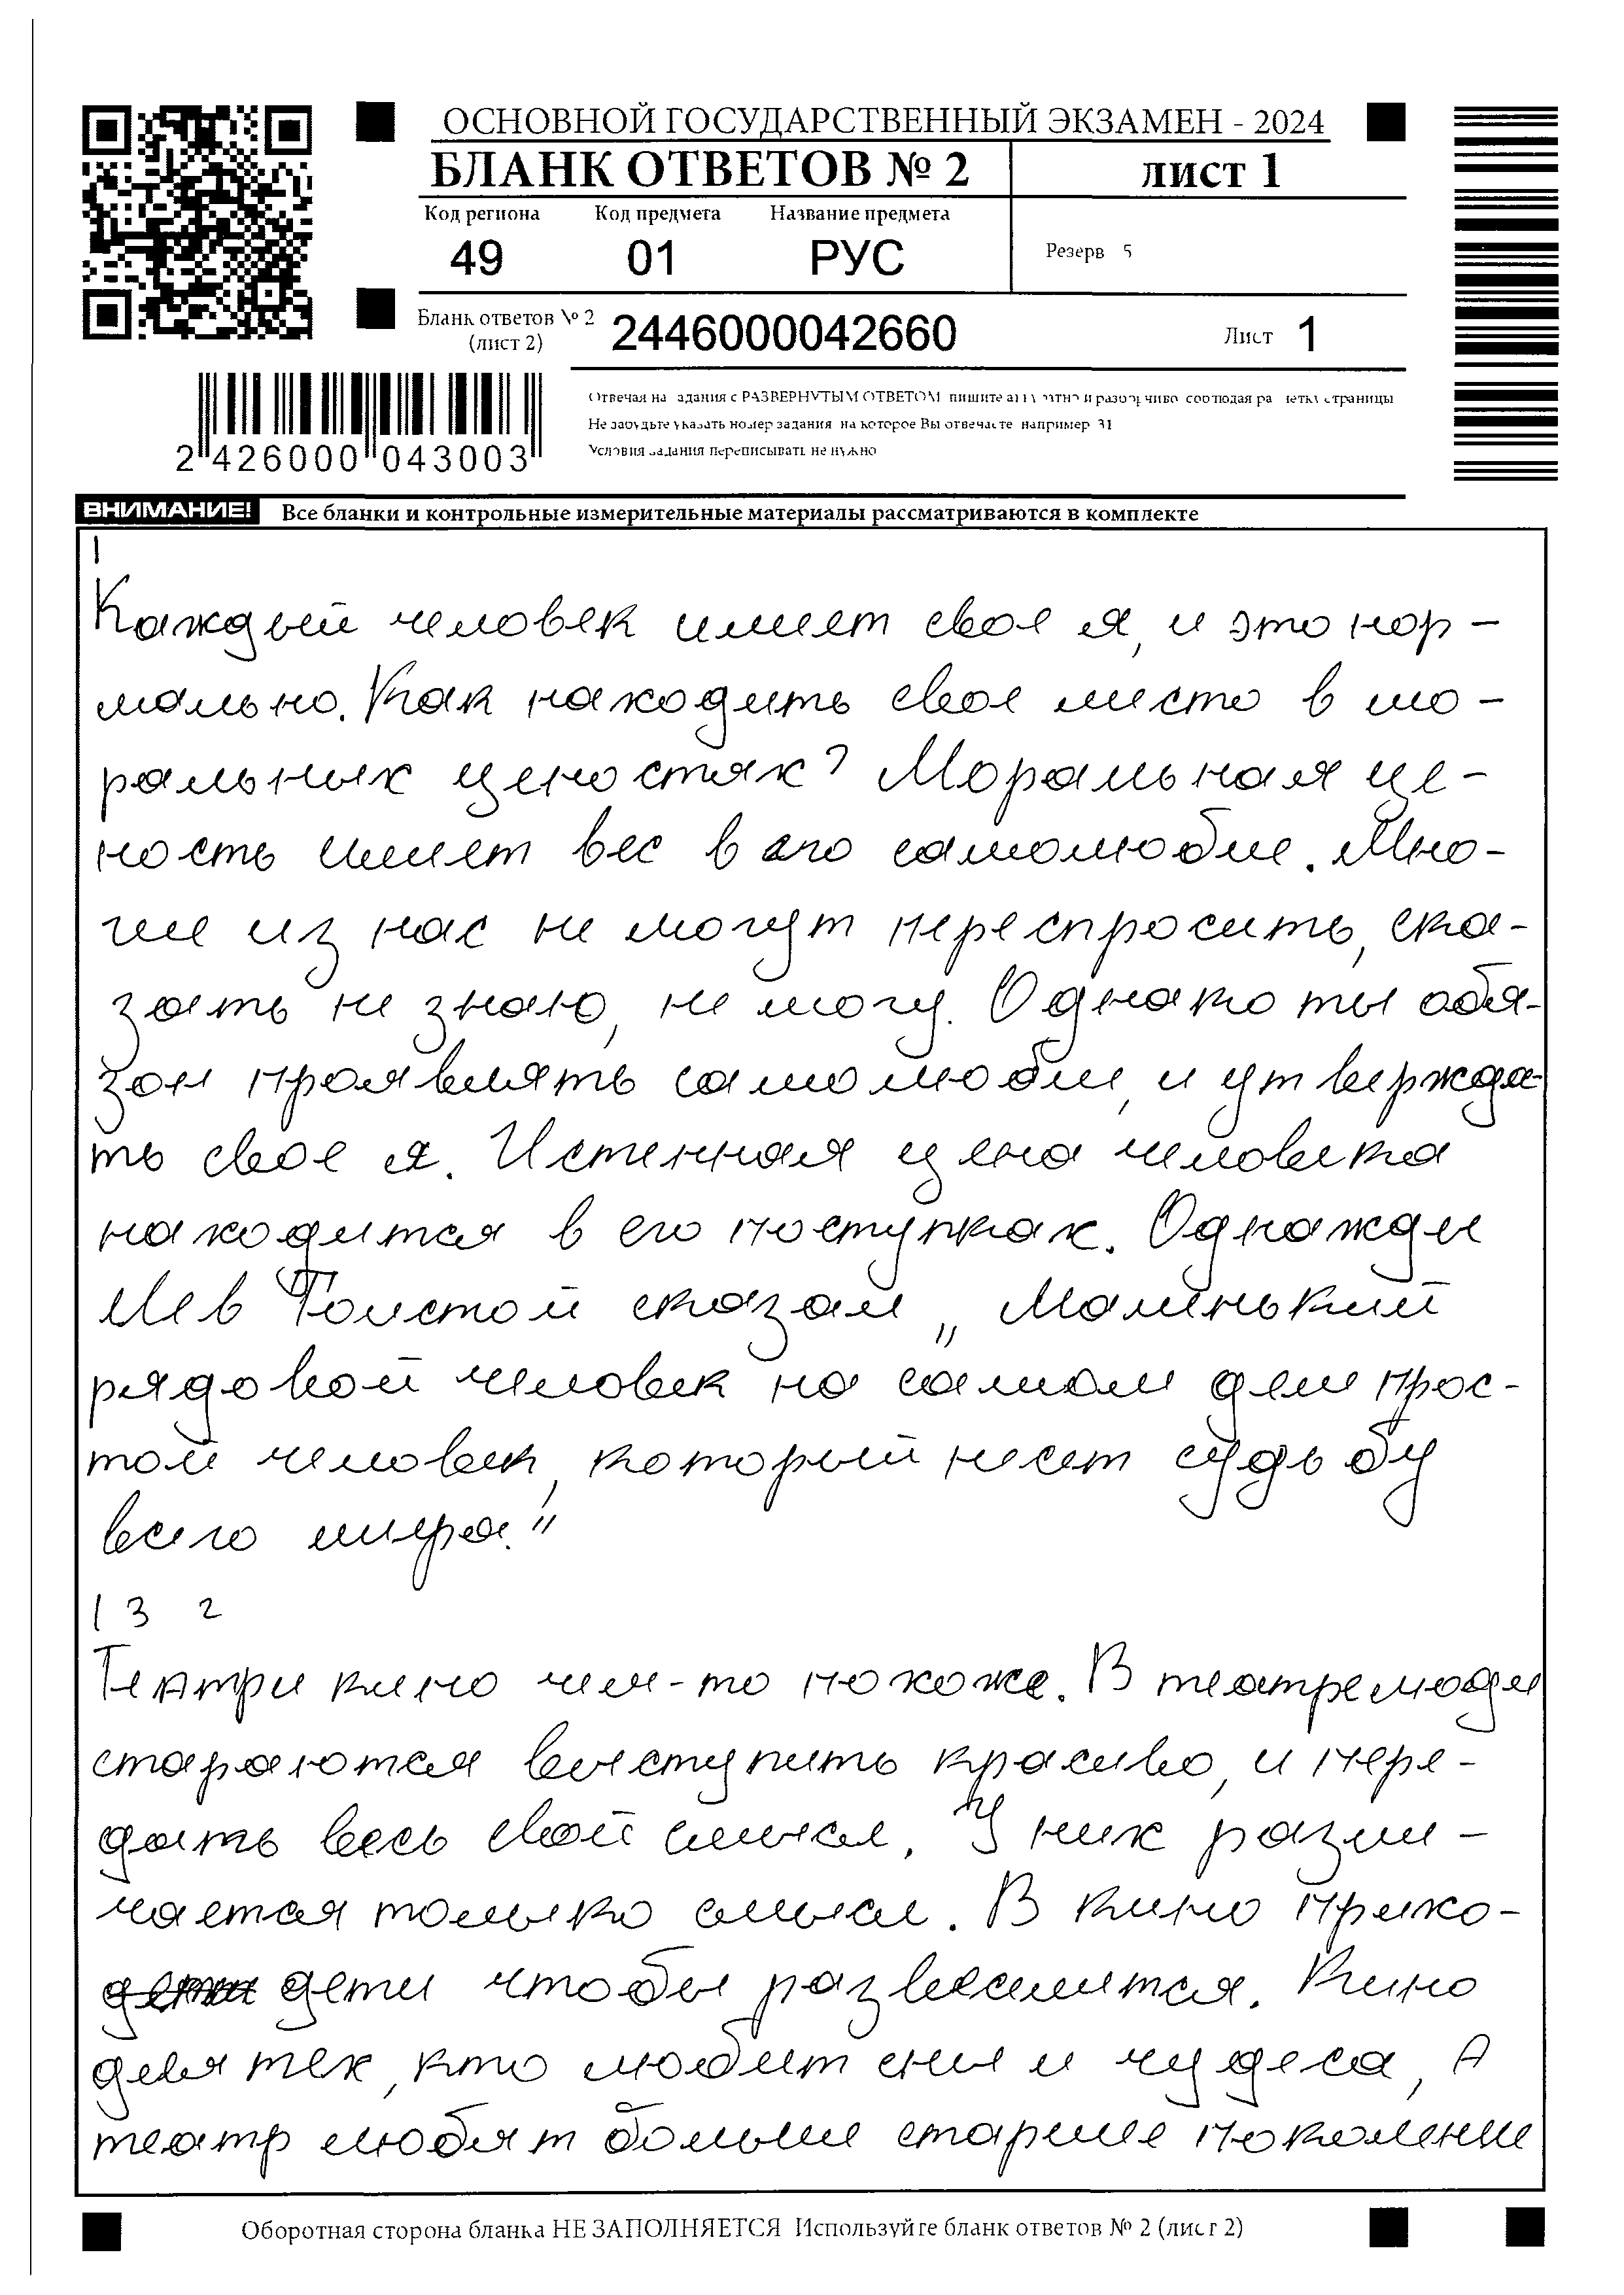 ОСНОВНОЙ ГОСУДАРСТВЕННЫЙ ЭКЗАМЕН - 2024
БЛАНК ОТВЕТОВ № 2
ЛИСТ 1
Код региона Код предмета Название предмета
49 01 РУС
Резерв 5
Бланк ответов № 2 (лист 2) 2446000042660
Лист 1
Отвечая на задания с РАЗВЕРНУТЫМ ОТВЕТОМ пишите аккуратно и разборчиво соблюдая разметку страницы
Не забудьте указать номер задания на которое Вы отвечаете например 31
Условия задания переписывать не нужно
2 426000 043003
ВНИМАНИЕ! Все бланки и контрольные измерительные материалы рассматриваются в комплекте
1
Каждый человек имеет свое я, и это нор-
мально. Как находить свое место в мо-
ральных ценостях? Моральная це-
ность имеет вес в его самолюбие. Мно-
гие из нас не могут переспросить, ска-
зать не знаю, не могу. Однако ты обя-
зан проявлять самолюбие, и утвержда-
ть свое я. Истенная цена человека
находится в его поступках. Однажды
Лев Толстой сказал „ Маленький
рядовой человек на самом деле прос-
той человек, который несет судьбу
всего мира."
13 2
Театр и кино чем-то похоже. В театре люди
стараются выступить красиво, и пере-
дать весь свой смысл. У них разли-
чается только смысл. В кино прихо-
дети дети чтобы развеселится. Кино
для тех, кто любит сны и чудеса, А
театр любят больше старшее поколение
Оборотная сторона бланка НЕ ЗАПОЛНЯЕТСЯ Используйте бланк ответов № 2 (лист 2)